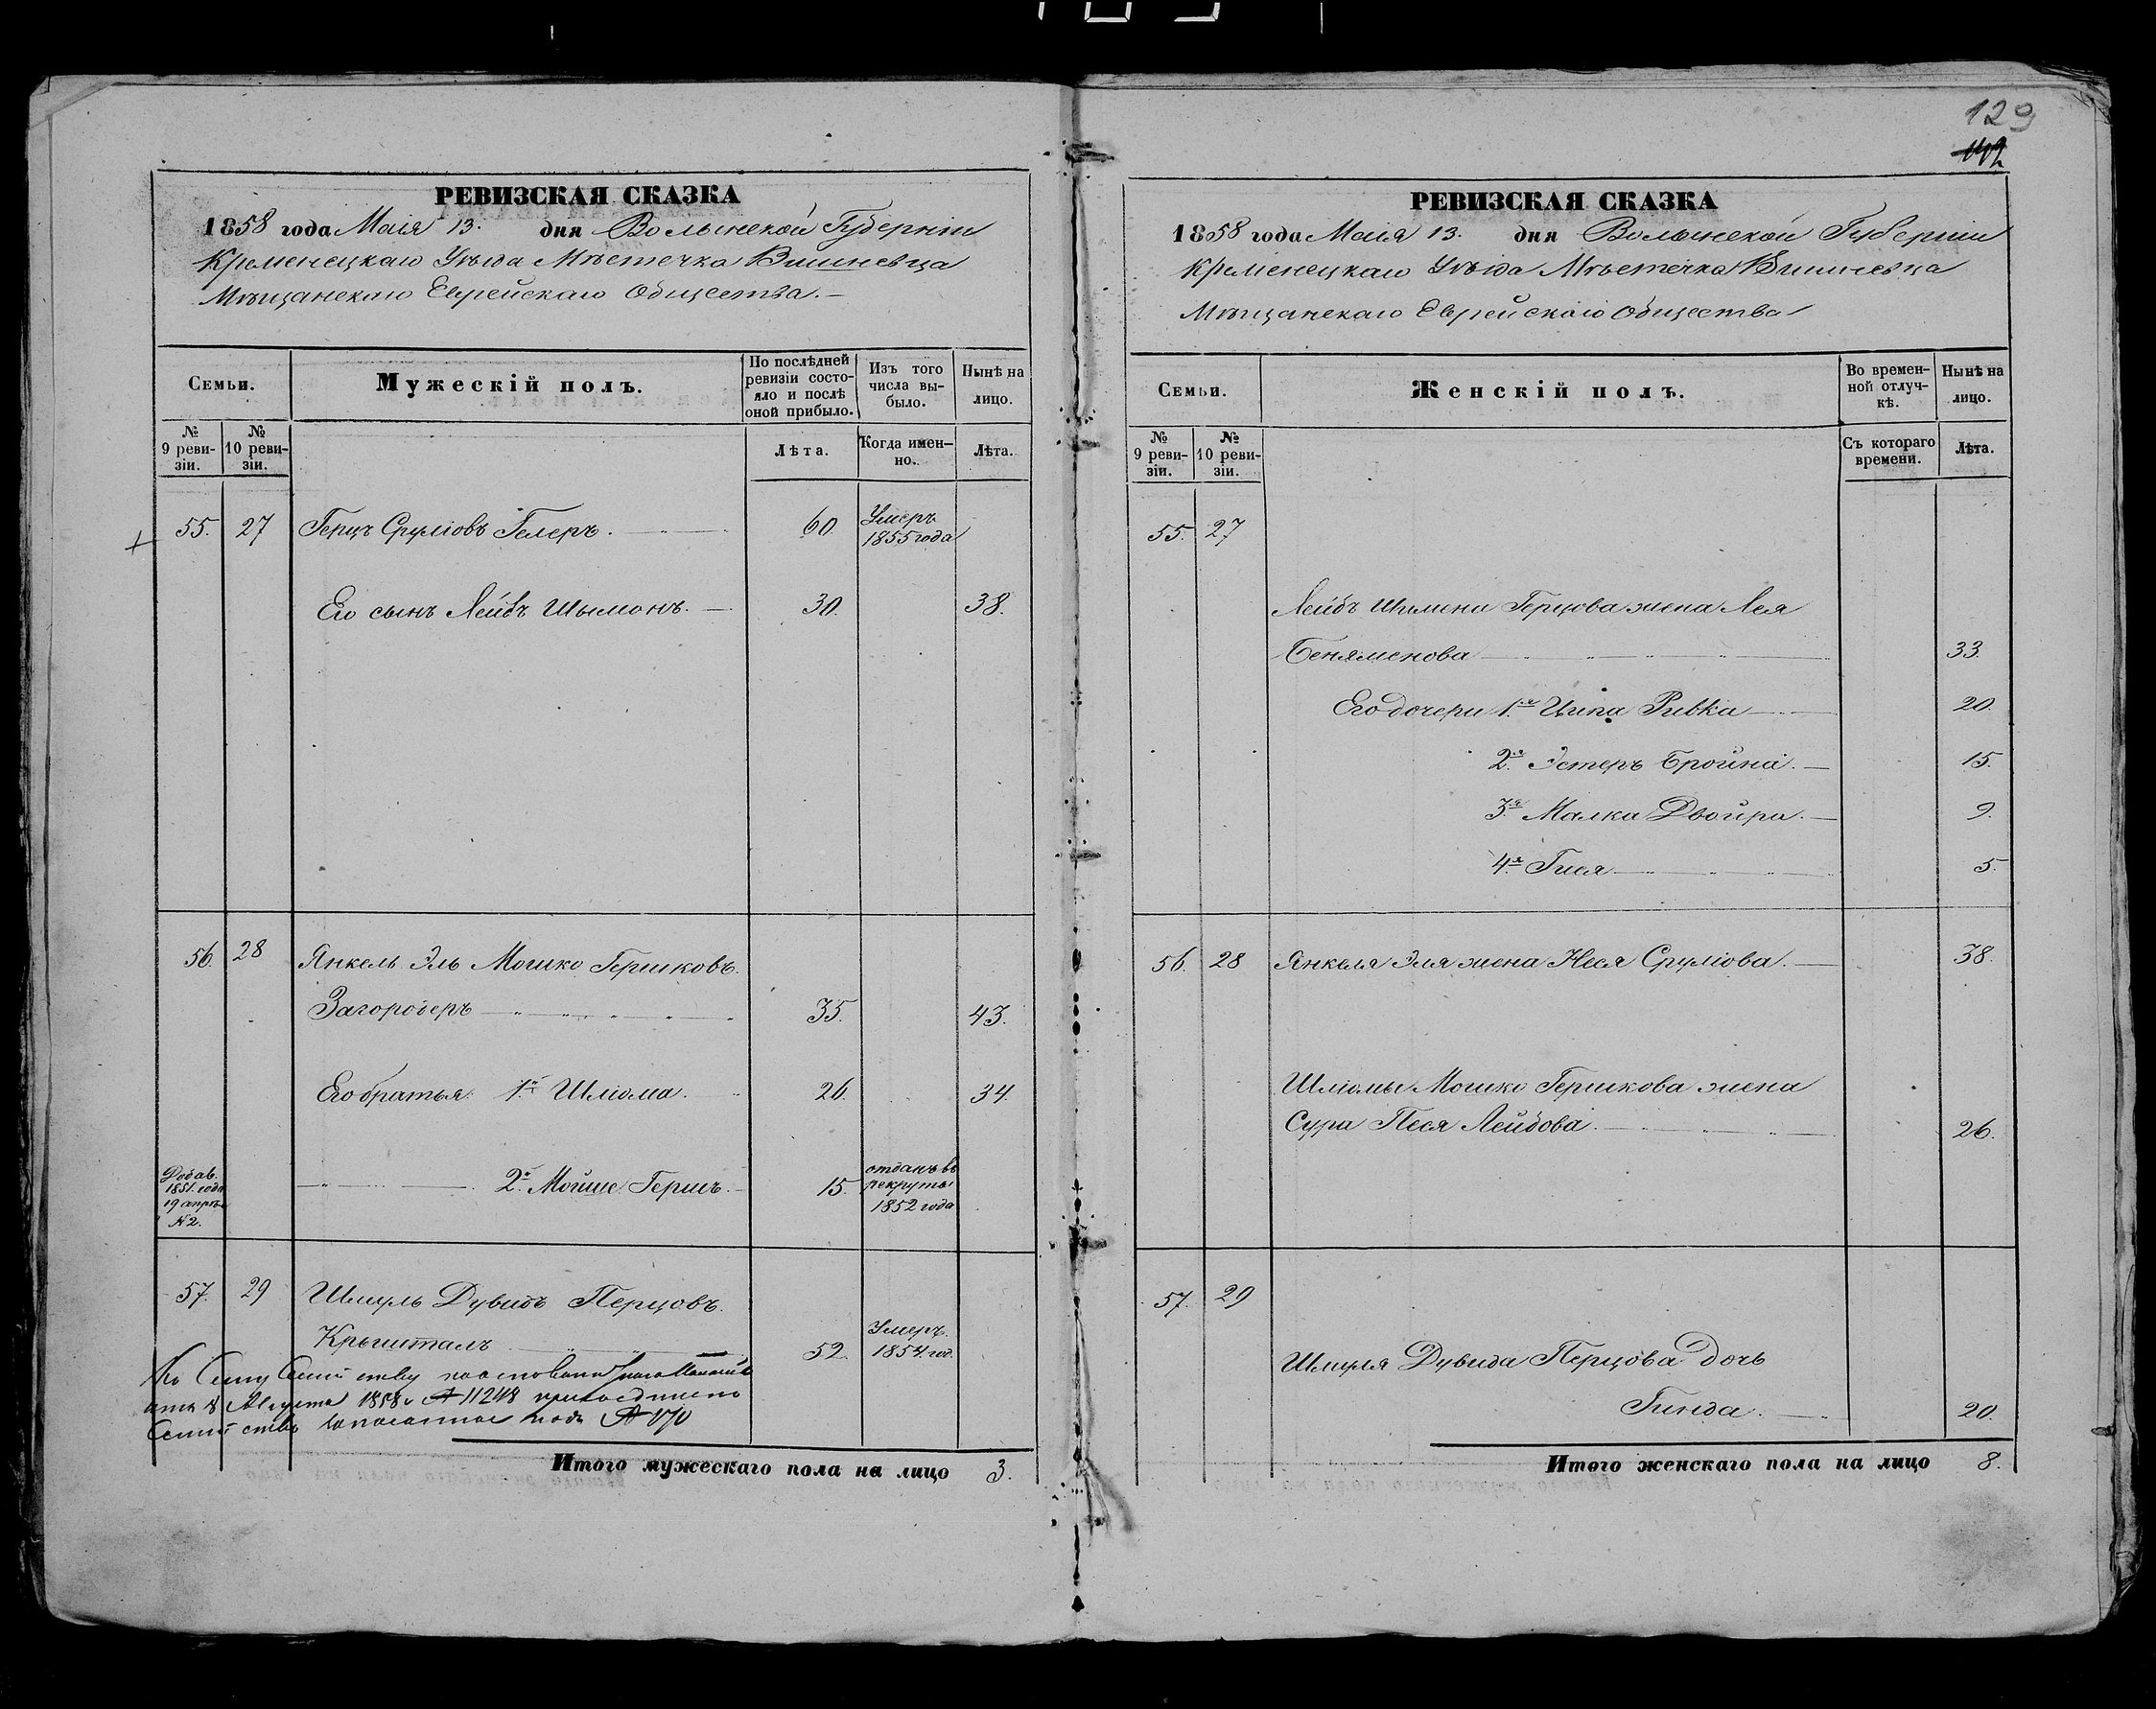 129
142
РЕВИЗСКАЯ СКАЗКА
1858 года Маія 13. дня Волынской Губерніи
Кременецкаго Уѣзда Мѣстечка Вишневца
Мѣщанскаго Еврейскаго Общества.
Семьи.
Мужескій полъ.
По послѣдней ревизіи состо-
яло и послѣ оной прибыло.
Изъ того числа вы-
было.
Нынѣ на лицо.
№ 9 реви-
зіи.
№ 10 реви-
зіи.
Лѣта.
Когда имен-
но.
Лѣта.
55. 27 Герцъ Сруліовъ Гелеръ. 60. Умеръ
1855 года
Его сынъ Лейбъ Шымонъ. 30. 38.
56. 28 Янкель Эль Мошко Гершковъ.
Загородеръ 35. 43.
Его братья 1й Шліома. 26. 34.
Добав.
1851. года
19 апрѣ.
№ 2.
2й Мойше Гершъ. 15. отданъ въ
рекруты
1852 года
57. 29 Шмуль Дувидъ Перцовъ.
Крышталъ 52. Умеръ.
1854. год.
Къ Сему Семейству
Августа 1858 № 11248 присоединено
Семейство записанное подъ № 170
Итого мужескаго пола на лицо 3.
РЕВИЗСКАЯ СКАЗКА
1858 года Маія 13. дня Волынской Губерніи
Кременецкаго Уѣзда Мѣстечка Вишневца
Мѣщанскаго Еврейскаго Общества
Семьи.
Женскій полъ.
Во времен-
ной отлуч-
кѣ.
Нынѣ на лицо.
№ 9 реви-
зіи.
№ 10 реви-
зіи.
Съ котораго времени.
Лѣта.
55. 27
Лейбъ Шимона Герцова жена Лея
Беняменова 33.
Его дочери 1я Ципа Ривка 20.
2я Эстеръ Бройна. 15.
3я Малка Двойра. 9.
4я Гися 5.
56. 28 Янкеля Эля жена Неся Сруліова. 38.
Шліомы Мошко Гершкова жена
Сура Песя Лейбова. 26.
57. 29
Шмуля Дувида Перцова дочь
Гинда. 20.
Итого женскаго пола на лицо 8.